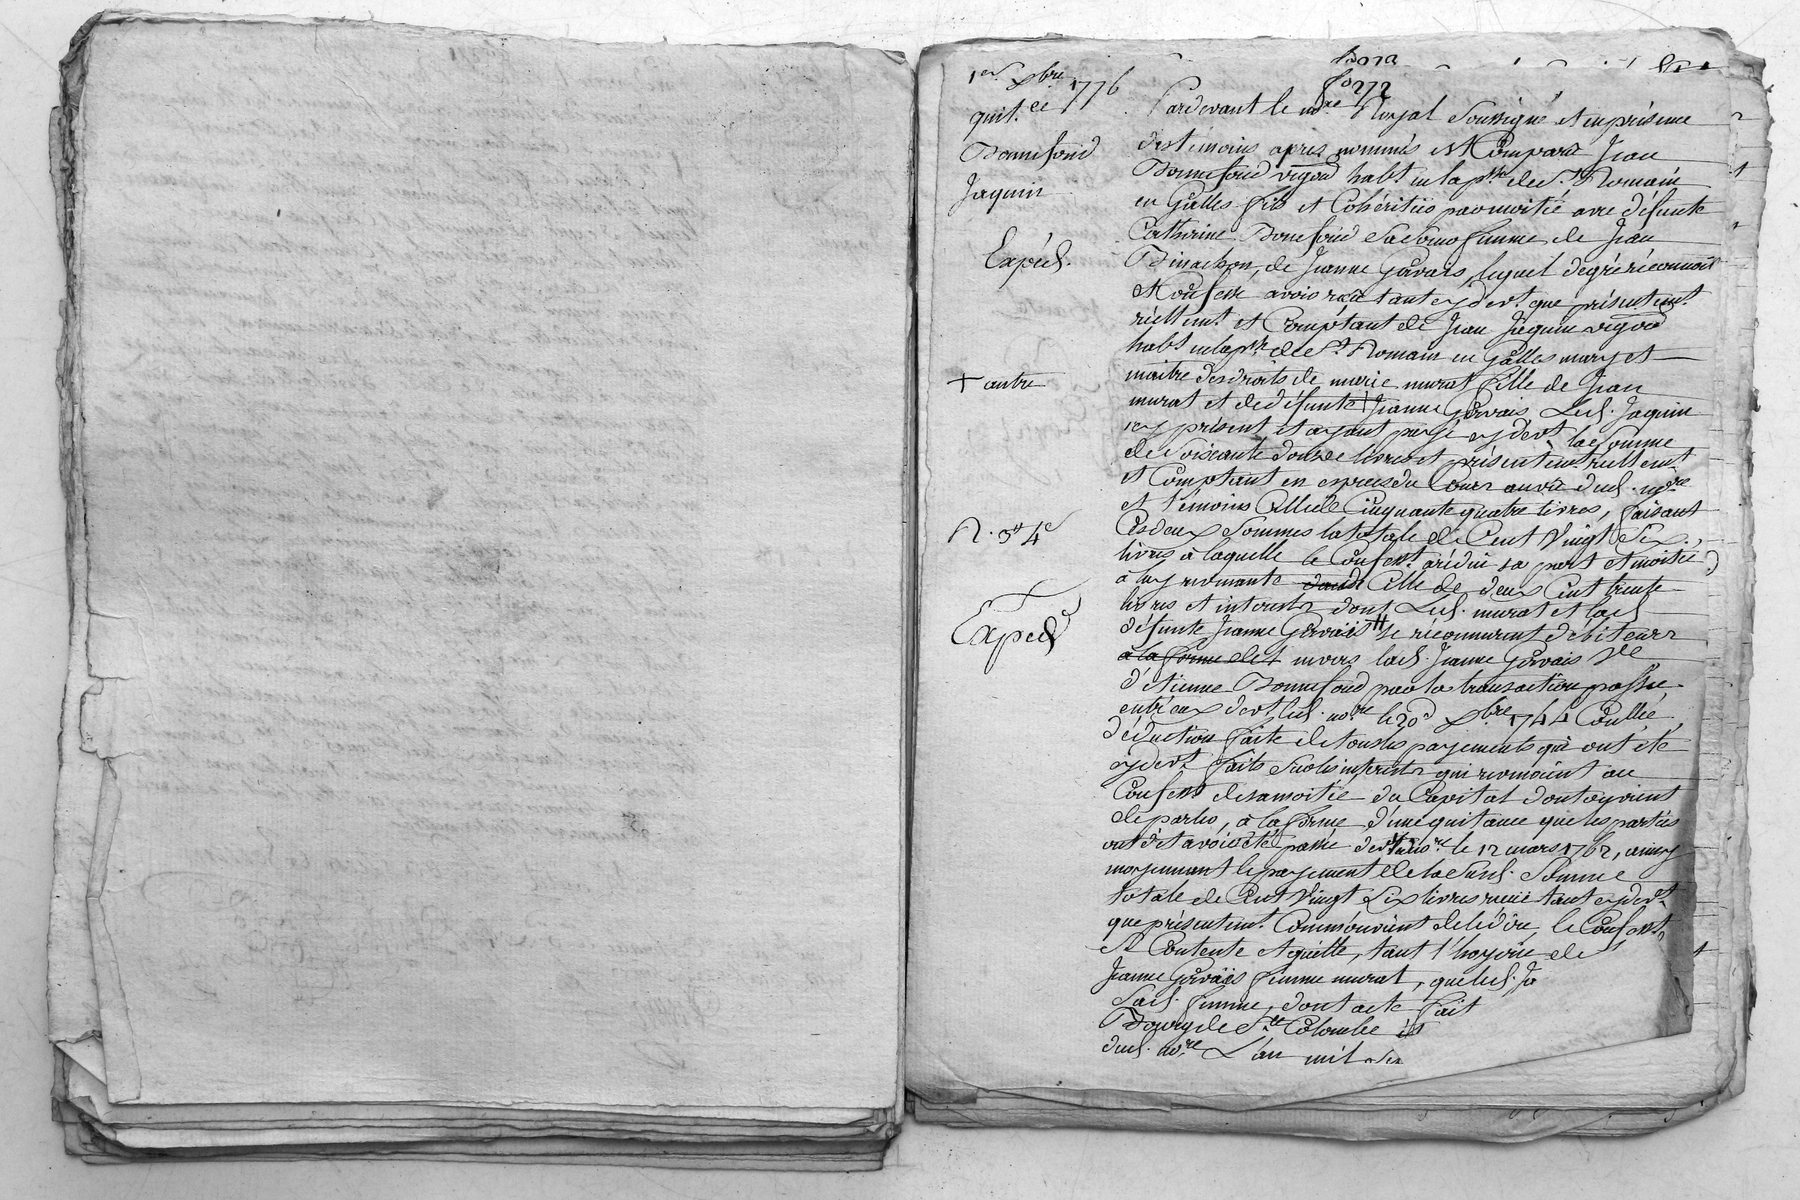 1er Xbre 1776
quit.ce
Bonnefond
Jaquin
Expéd.
+ autre
R. 3# 4s
Expéd
fo 272
Pardevant le nore Royal soussigné et en présence
des témoins apres nommés est Comparu Jean
Bonnefond vigron habt en la psse de St Romain
en Galles fils et Cohéritié par moitié avec défunte
Catherine Bonnefond sa soeur femme de Jean
de Jeanne Gervais, lequel de gré réconnoit
et Confesse avoir reçu tant cy devt que présentemt
réellemt et Comptant de Jean Jaquin vigron
habt en la psse de St Romain en Galles mary et
maitre des droits de marie murat fille de Jean
murat et de défunte + Jeanne Gervais Led. Jaquin
icy présent et ayant payé cy devt la somme
de soixante douze livres et présentemt réellemt
et Comptant en espèces du Cours au vû dud. nore
et témoins Celle de Cinquante quatre livres, faisant
Ces deux sommes la totale de Cent Vingt Six
livres à laquelle le Confesst a réduit sa part et moitié
à luy revenante Celle de deux Cent trente
livres et interets dont Led. murat et lad
défunte Jeanne Gervais # se réconnurent débiteurs
à la forme de envers lad. Jeanne Gervais Ve
d'Etienne Bonnefond par la transaction passée
entr'eux devt led. nore le 20e Xbre 1744 Conllée,
déduction faite de tous les payements qui ont été
cy devt faits sur les interets qui revenoient au
Confesst de sa moitié du Capital dont on vient
de parler, à la forme d'une quitance que les parties
ont dit avoir été passée devt le 12 mars 1762,
moyennant le payement de la susd. Somme
totale de Cent Vingt Six livres reçuë tant cy devt
que présentemt Comm'on vient de le dire, le Confesst
se Contente et quitte, tant l'hoyrie de
Jeanne Gervais femme murat, que led. Ja
sad. femme, dont acte fait
Bourg de Ste Colombe
dud. nore L'an mil